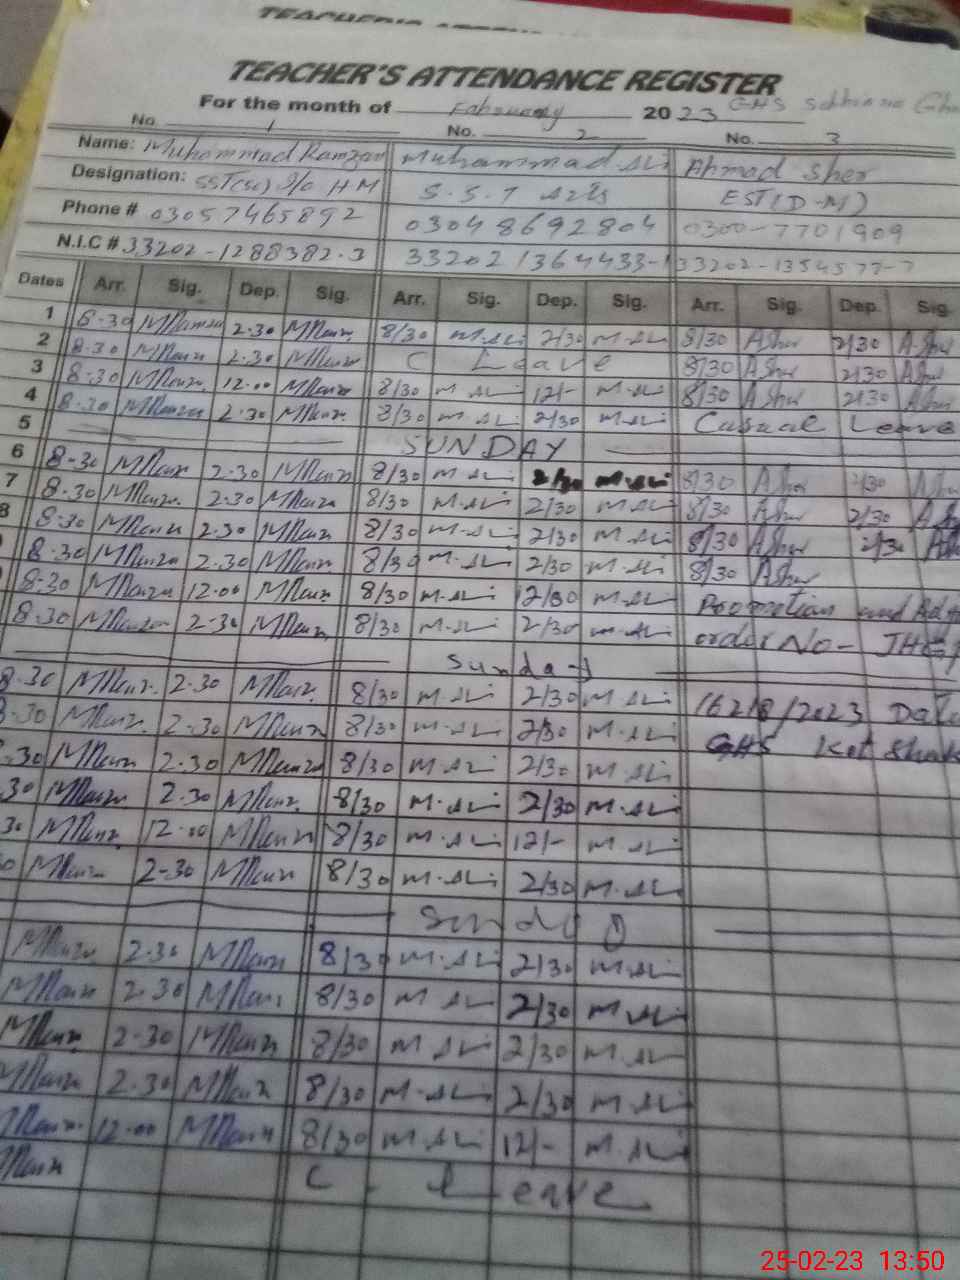 TEACHER'S ATTENDANCE REGISTER
For the month of February 2023 GHS
No. 1 No. 2 No. 3
Name: Muhammad Ramzan Muhammad Ali Ahmad Sher
Designation: SST(Sc) I/c HM S.S.T Arts EST(D-M)
Phone # 03057465892 03048692804 0300-7701909
N.I.C # 33202-1288382-3 33202 1364433-1 33202-1354577-7
Dates Arr. Sig. Dep. Sig. Arr. Sig. Dep. Sig. Arr. Sig. Dep. Sig.
1 8-30 MRamzan 2.30 MRamzn 8/30 M.Ali 2/30 M.Ali 8/30 A Sher 2/30 A Sher
2 8.30 MRamzn 2.30 MRamzn C Leave 8/30 A Sher 2/30 A Sher
3 8-30 MRamzn 12.00 MRamzn 8/30 M.Ali 12/- M.Ali 8/30 A Sher 2/30 A Sher
4 8.30 MRamzn 2.30 MRamzn 8/30 M.Ali 2/30 M.Ali Casual Leave
5 SUNDAY
6 8-30 MRamzn 2.30 MRamzn 8/30 M.Ali 2/30 M.Ali 8/30 A Sher 2/30 A Sher
7 8.30 MRamzn 2.30 MRamzn 8/30 M.Ali 2/30 M.Ali 8/30 A Sher 2/30 A Sher
8 8-30 MRamzn 2.30 MRamzn 8/30 M.Ali 2/30 M.Ali 8/30 A Sher 2/30 A Sher
8.30 MRamzn 2.30 MRamzn 8/30 M.Ali 2/30 M.Ali 8/30 A Sher
8-30 MRamzn 12.00 MRamzn 8/30 M.Ali 12/30 M.Ali Promotion and
8.30 MRamzn 2-30 MRamzn 8/30 M.Ali 2/30 M.Ali order No-
Sunday
8.30 MRamzn 2.30 MRamzn 8/30 M.Ali 2/30 M.Ali /2023
8-30 MRamzn 2.30 MRamzn 8/30 M.Ali 2/30 M.Ali GHS Kot
.30 MRamzn 2.30 MRamzn 8/30 M.Ali 2/30 M.Ali
30 MRamzn 2.30 MRamzn 8/30 M.Ali 2/30 M.Ali
30 MRamzn 12.00 MRamzn 8/30 M.Ali 12/- M.Ali
MRamzn 2-30 MRamzn 8/30 M.Ali 2/30 M.Ali
Sunday
MRamzn 2.30 MRamzn 8/30 M.Ali 2/30 M.Ali
MRamzn 2.30 MRamzn 8/30 M Ali 2/30 M.Ali
MRamzn 2.30 MRamzn 8/30 M Ali 2/30 M.Ali
MRamzn 2.30 MRamzn 8/30 M.Ali 2/30 M.Ali
MRamzn 12.00 MRamzn 8/30 M.Ali 12/- M.Ali
MRamzn C. Leave
25-02-23 13:50